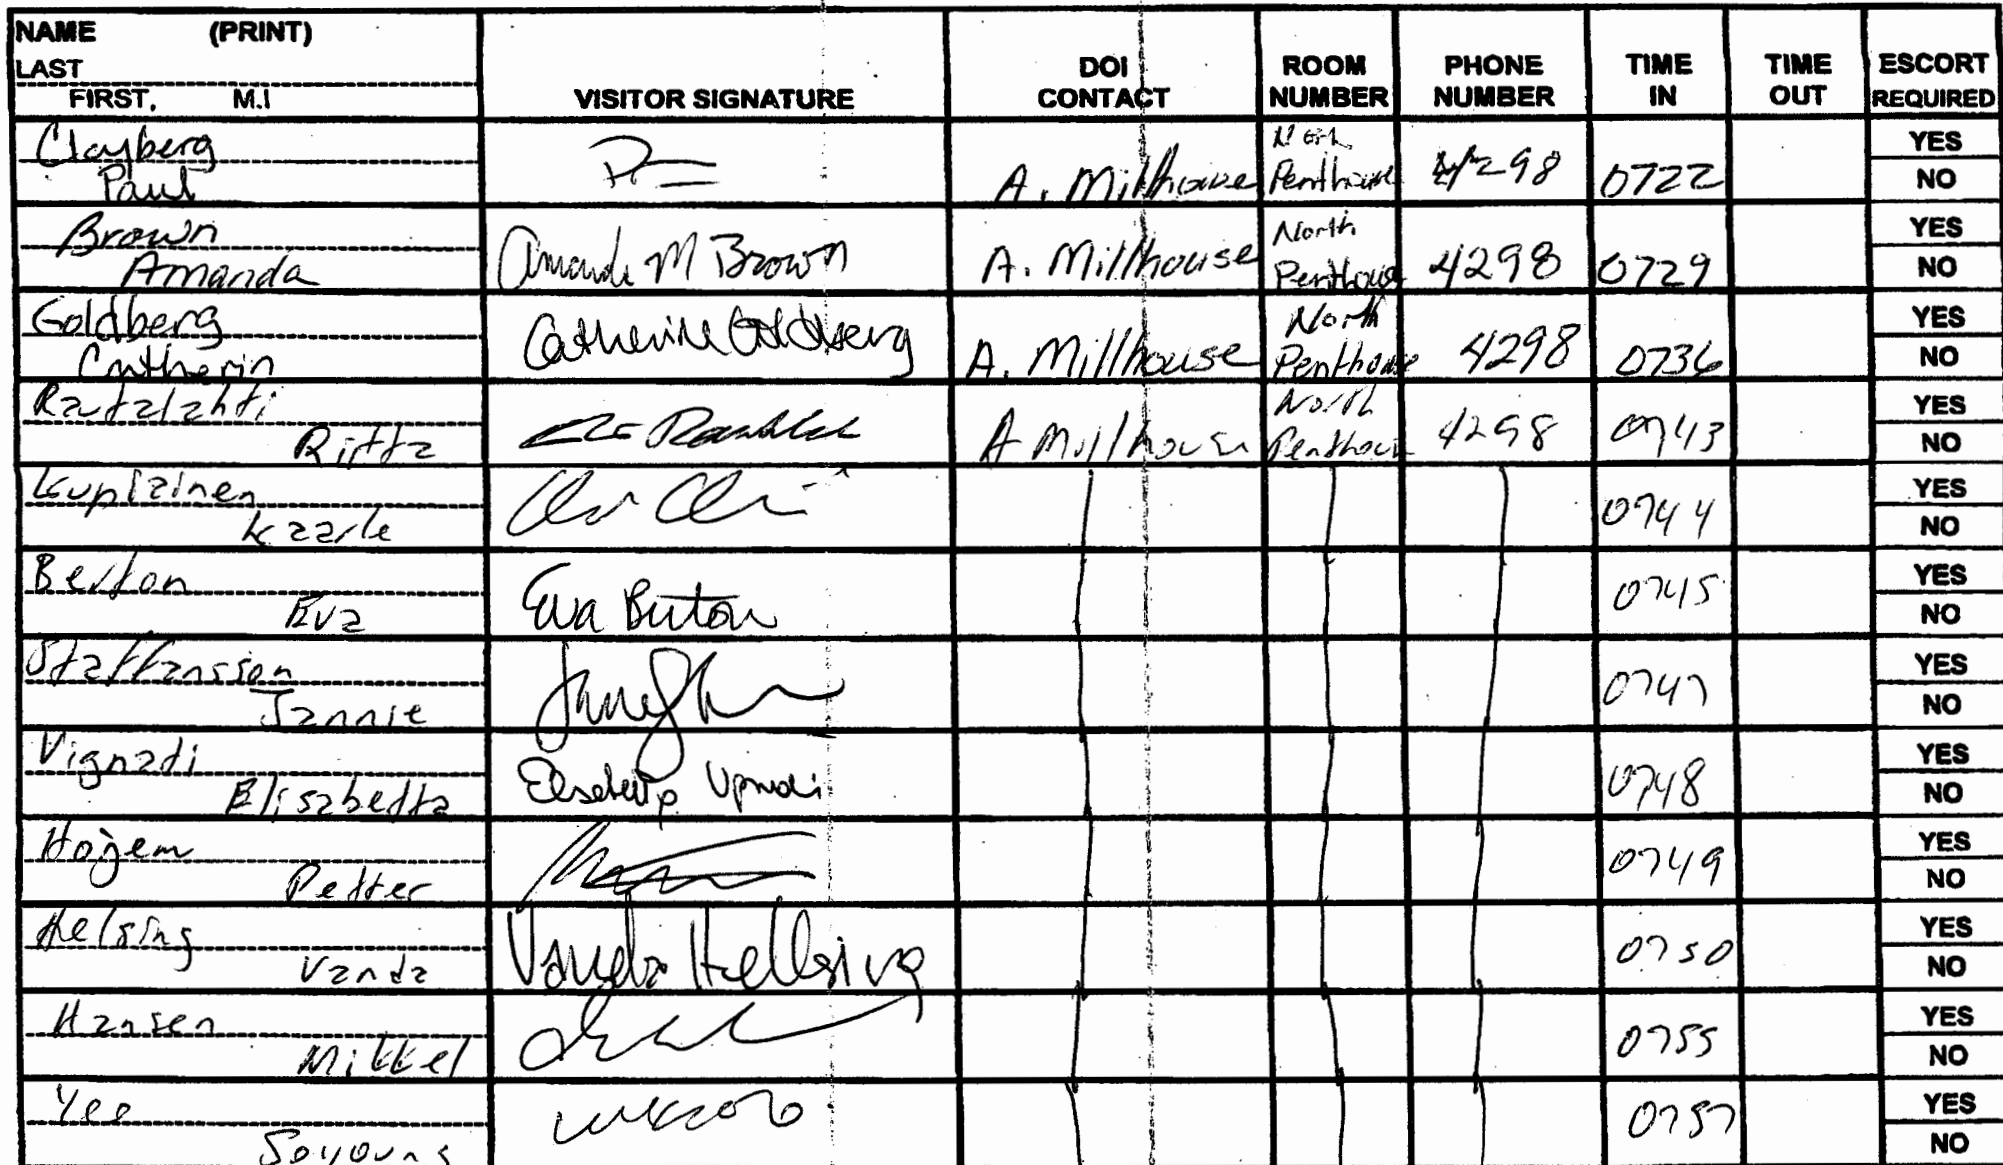 NAME (PRINT)
LAST
FIRST, M.I
VISITOR SIGNATURE
DOI CONTACT
ROOM NUMBER
PHONE NUMBER
TIME IN
TIME OUT
ESCORT REQUIRED
Clayberg
Paul
A. Millhouse
North
Penthouse
4298
0722
YES
NO
Brown
Amanda
Amanda M Brown
A. Millhouse
North
Penthouse
4298
0729
YES
NO
Goldberg
Catherin
Catherine Goldberg
A. Millhouse
North
Penthouse
4298
0736
YES
NO
Rautalahti
Riitta
A Millhouse
North
Penthouse
4298
0743
YES
NO
Kupiainen
Kaarle
0744
YES
NO
Berton
Eva
Eva Berton
0745
YES
NO
Staffansson
Jannie
0747
YES
NO
Vignati
Elisabetta
0748
YES
NO
Hojem
Petter
0749
YES
NO
Helsing
Vanda
Vanda Hellsing
0750
YES
NO
Hansen
Mikkel
0755
YES
NO
Yee
Soyoung
0757
YES
NO